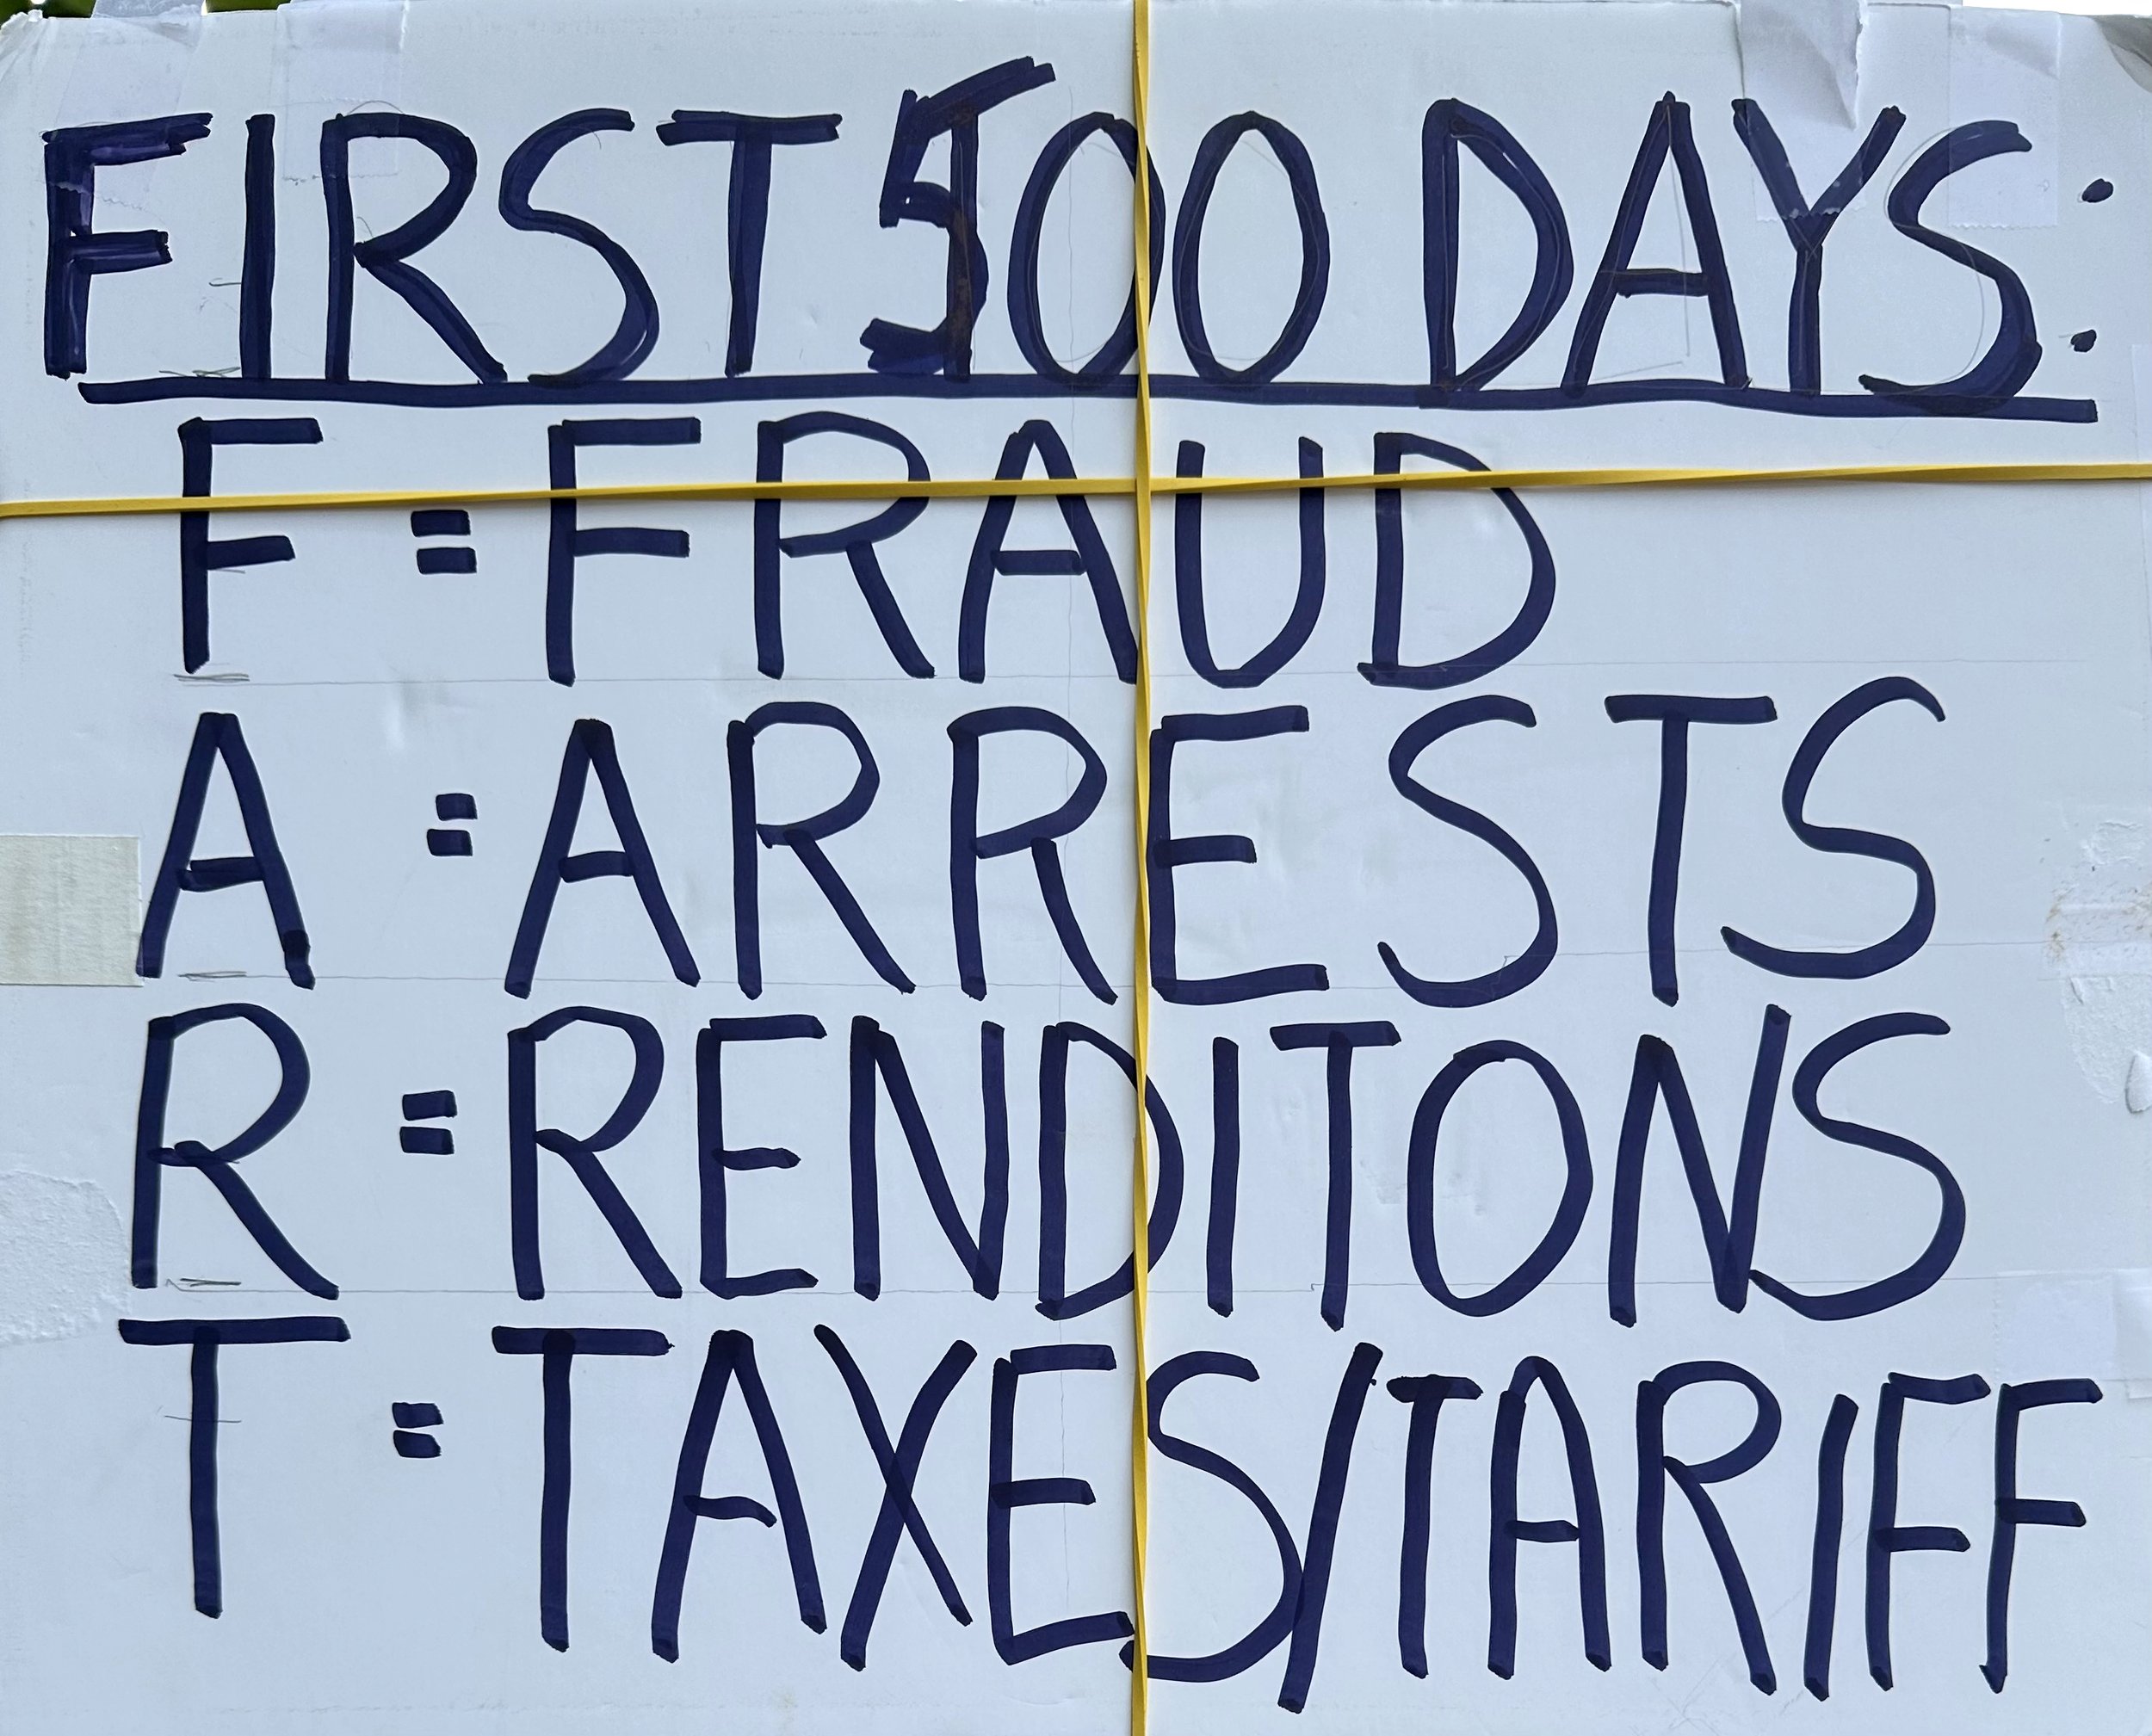 FIRST 500 DAYS:
F = FRAUD
A = ARRESTS
R = RENDITONS
T = TAXES/TARIFF